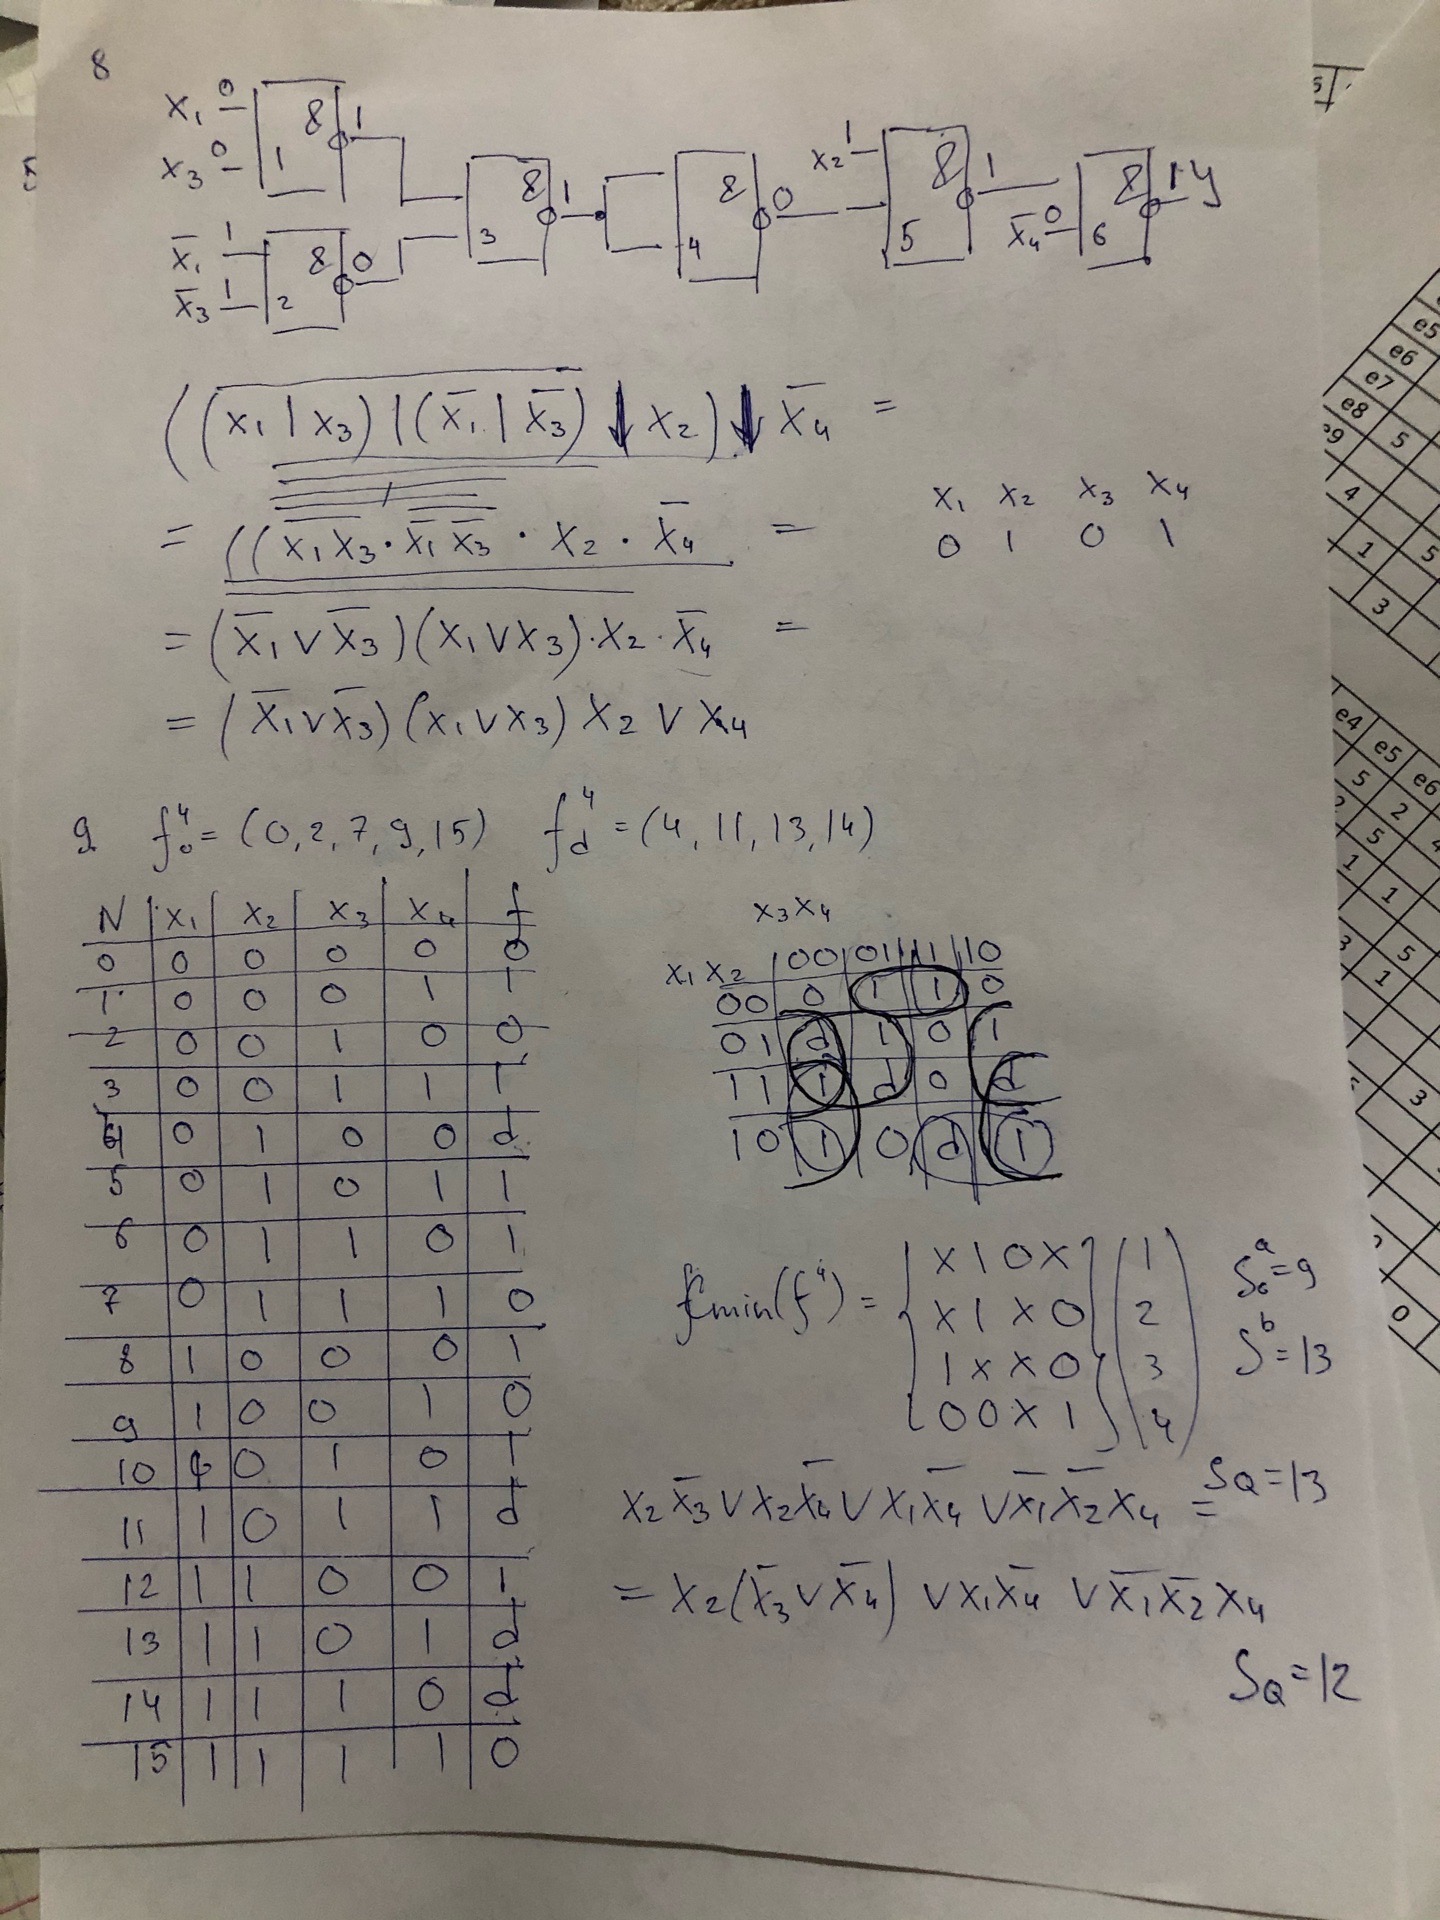 8
x₁ 0 8 1
x₃ 0 1
x̄₁ 1 8 0
x̄₃ 1 2
8 1 3
8 0 4
x₂ 1 8 1 5
x̄₄ 0 8 1 y 6
((x₁ | x₃) | (x̄₁ | x̄₃) ↓ x₂) ↓ x̄₄ =
= ((x̄₁x̄₃ · x̄₁ x̄₃ · x₂ · x̄₄ =
x₁ x₂ x₃ x₄
0 1 0 1
= (x̄₁ ∨ x̄₃)(x₁ ∨ x₃) · x₂ · x̄₄ =
= (x̄₁ ∨ x̄₃)(x₁ ∨ x₃) x₂ ∨ x₄
9 f₀⁴ = (0, 2, 7, 9, 15) f_d⁴ = (4, 11, 13, 14)
N x₁ x₂ x₃ x₄ f
0 0 0 0 0 0
1 0 0 0 1 1
2 0 0 1 0 0
3 0 0 1 1 1
4 0 1 0 0 d
5 0 1 0 1 1
6 0 1 1 0 1
7 0 1 1 1 0
8 1 0 0 0 1
9 1 0 0 1 0
10 1 0 1 0 1
11 1 0 1 1 d
12 1 1 0 0 1
13 1 1 0 1 d
14 1 1 1 0 d
15 1 1 1 1 0
x₃x₄
x₁x₂ 00 01 11 10
00 0 1 1 0
01 d 1 0 1
11 1 d 0 d
10 1 0 d 1
Cmin(f⁴) =
x 1 0 x 1
x 1 x 0 2
1 x x 0 3
0 0 x 1 4
Sᵃ = 9
Sᵇ = 13
x₂x̄₃ ∨ x₂x̄₄ ∨ x₁x̄₄ ∨ x̄₁x̄₂x₄ =
S_Q = 13
= x₂(x̄₃ ∨ x̄₄) ∨ x₁x̄₄ ∨ x̄₁x̄₂x₄
S_Q = 12
e5
e6
e7
e8 5
4
1 5
3
e4 e5 e6
5 2 4
5
1 1
3 1 5
3
0